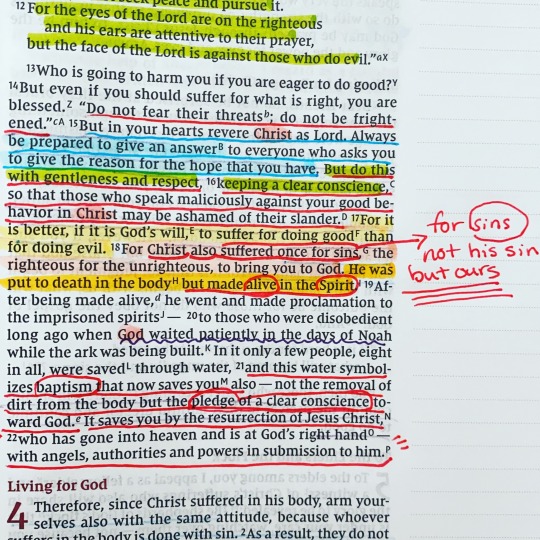 seek peace and pursue it.
12 For the eyes of the Lord are on the righteous
and his ears are attentive to their prayer,
but the face of the Lord is against those who do evil."aX
13Who is going to harm you if you are eager to do good?Y
14But even if you should suffer for what is right, you are
blessed.Z "Do not fear their threatsb; do not be fright-
ened."cA 15But in your hearts revere Christ as Lord. Always
be prepared to give an answerB to everyone who asks you
to give the reason for the hope that you have. But do this
with gentleness and respect, 16keeping a clear conscience,C
so that those who speak maliciously against your good be-
havior in Christ may be ashamed of their slander.D 17For it
is better, if it is God's will,E to suffer for doing goodF than
for doing evil. 18For Christ also suffered once for sins,G the
righteous for the unrighteous, to bring you to God. He was
put to death in the bodyH but made alive in the Spirit.I 19Af-
ter being made alive,d he went and made proclamation to
the imprisoned spiritsJ— 20to those who were disobedient
long ago when God waited patiently in the days of Noah
while the ark was being built.K In it only a few people, eight
in all, were savedL through water, 21and this water symbol-
izes baptism that now saves youM also—not the removal of
dirt from the body but the pledge of a clear conscience to-
ward God.e It saves you by the resurrection of Jesus Christ,N
22who has gone into heaven and is at God's right handO—
with angels, authorities and powers in submission to him.P
for sins
not his sin
but ours
Living for God
4 Therefore, since Christ suffered in his body, arm your-
selves also with the same attitude, because whoever
suffers in the body is done with sin. 2As a result, they do not